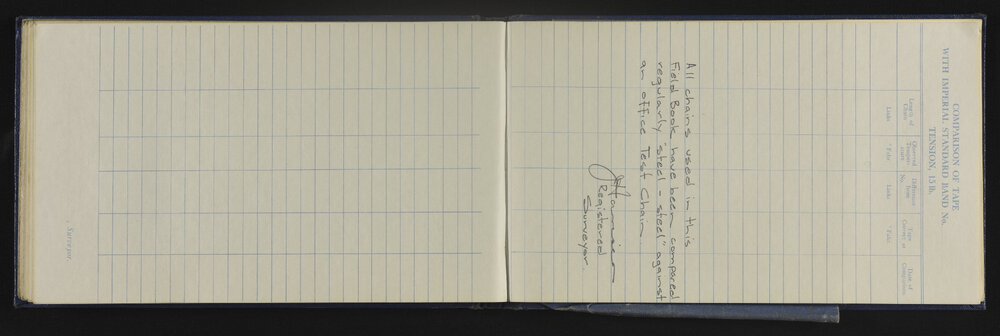 COMPARISON OF TAPE
WITH IMPERIAL STANDARD BAND No.
TENSION, 15 lb.
Length of Chain
Observed Temperature
Difference from No.
Tape Correct at
Date of Comparison
Links
° Fahr.
Links
° Fahr.
All chains used in this
Field Book have been compared
regularly "steel - steel" against
an office Test Chain.
Registered
Surveyor
Surveyor.